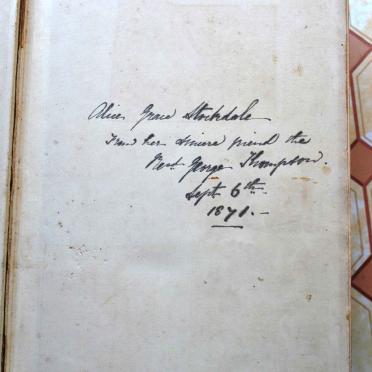 Alice Grace Stockdale
From her sincere friend the
Revd. George Thompson.
Sept 6th
1871.-